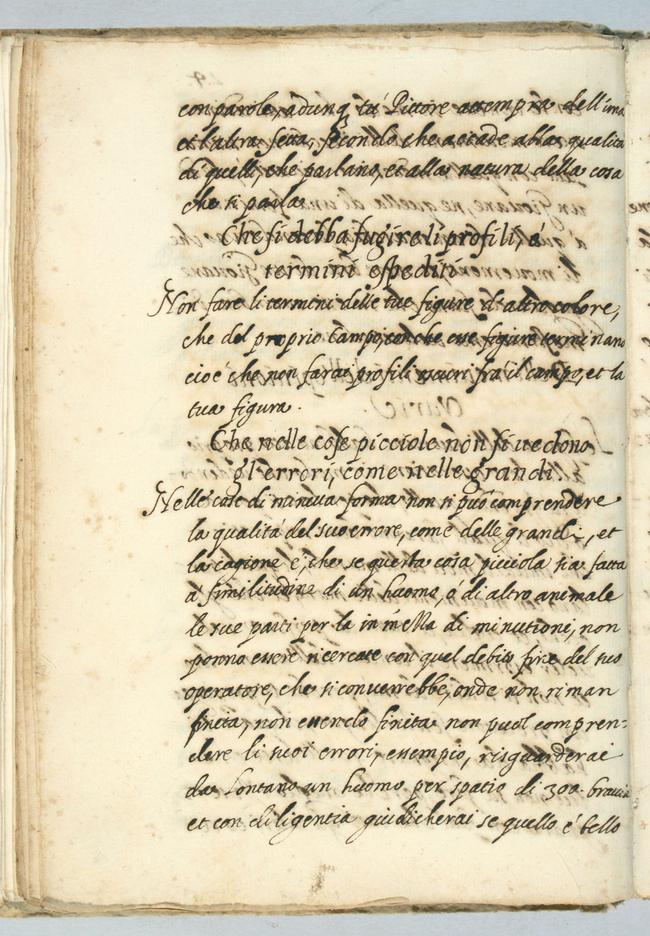 con parole, adunq tu Pittore attempra dell'una
et l'altra setta, secondo che accade alla qualità
di quelli, che parlano, et alla natura della cosa
che si parla
Che si debba fugire li profili, è
termini espediti
Non fare li termini delle tue figure d'altro colore,
che del proprio campo, con che esse figure terminano
cioè che non farai profili oscuri frà il campo, et la
tua figura.
Che nelle cose picciole non si vedono
gl'errori, come nelle grandi
Nelle cose di minuta forma non si può comprendere
la qualità del suo errore, come delle grandi, et
la cagione è, che se questa cosa picciola sia fatta
à similitudine di un huomo, ò di altro animale
le sue parti per la diminutione, non
ponno essere ricercate con quel debito fine del suo
operatore, che si converrebbe, onde non riman
finita, non essendo finita non puoi compren-
dere li suoi errori, essempio, risguarderai
da lontano un huomo per spatio di 300. braccia
et con diligentia giudicherai se quello è bello